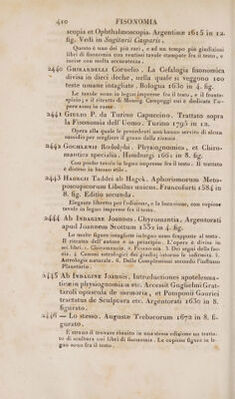 410 FISONOMIA
scopia et Ophthalmoscopia. Argentinae 1615 in 12.
fig. Vedi in Sagittarii Gasparis.
Questo è uno dei più rari, e ad un tempo più giudiziosi
libri di fisonomia con rustiche tavole stampate fra il testo, e
incise con molta accuratezza.
2440 GHIRARDELLI Cornelio. La Cefalogia fisonomica
divisa in dieci deche, nella quale si veggono 100
teste umane intagliate. Bologna 1630 in 4. fig.
Le tavole sono in legno impresse fra il testo, e il fronte-
spizio, e il ritratto di Monsig. Campeggi cui è dedicata l'o-
pera sono in rame.
2441 GIULIO P. da Torino Capuccino. Trattato sopra
la Fisonomia dell'Uomo. Torino 1795 in 12.
Opera alla quale le precedenti non hanno servito di alcun
sussidio per scegliere il grano dalla zizania.
2442 GOCLENII Rodolphi. Physiognomica, et Chiro-
mantica specialia. Hamburgi 1661 in 8. fig.
Con poche tavole in legno impresse fra il testo. Il trattato
è disteso in buono stile.
2443 HAGECII Taddei ab Hagek. Aphorismorum Meto-
poscopicorum Libellus unicus. Francofurti 1584 in
8. fig. Editio secunda.
Elegante libretto per l'edizione, e la locuzione, con copiose
tavole in legno impresse fra il testo.
2444 AB INDAGINE Joannes. Chyromantia. Argentorati
apud Joannem Scottum 1531 in 4. fig.
La molte figure intagliate in legno sono frapposte al testo.
Il ritratto dell'autore è in principio. L'opera è divisa in
sei libri. 1. Chiromanzia. 2. Fisonomia. 3. Dei segni delle fac-
cie. 4. Canoni astrologici dei giudizj intorno le infermità. 5.
Astrologia naturale. 6. Delle Complessioni secondo l'influsso
Planetario.
2445 AB INDAGINE Joannis. Introductiones apotelesma-
ticae in physiognomia etc. Accessit Guglielmi Gra-
taroli opuscula de memoria, et Pomponii Gaurici
tractatus de Sculptura etc. Argentorati 1630 in 8.
figurato.
2446 — Lo stesso. Augustae Trebocorum 1672 in 8. fi-
gurato.
È strano il trovare riunito in una stessa edizione un tratta-
to di scultura coi libri di fisonomia. Le copiose figure in le-
gno sono fra il testo.